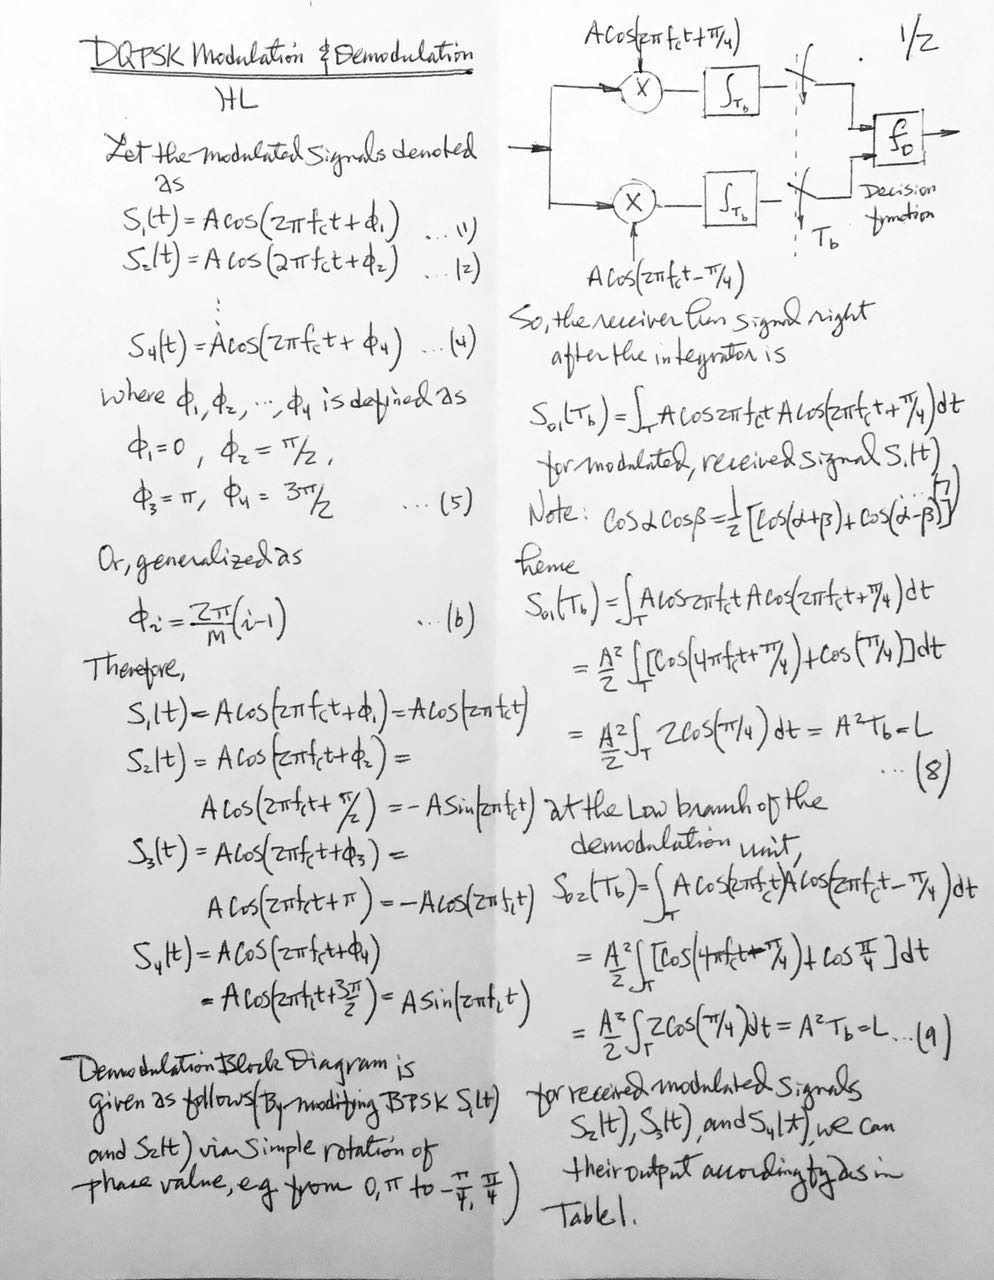 DQPSK Modulation & Demodulation
HL
Let the modulated signals denoted
as
S₁(t) = A cos(2πf_ct + ϕ₁) ...(1)
S₂(t) = A cos(2πf_ct + ϕ₂) ...(2)
⋮
S₄(t) = A cos(2πf_ct + ϕ₄) ...(4)
where ϕ₁, ϕ₂, ..., ϕ₄ is defined as
ϕ₁ = 0, ϕ₂ = π/2,
ϕ₃ = π, ϕ₄ = 3π/2 ...(5)
Or, generalized as
ϕ_i = 2π/M (i-1) ...(6)
Therefore,
S₁(t) = A cos(2πf_ct + ϕ₁) = A cos(2πf_ct)
S₂(t) = A cos(2πf_ct + ϕ₂) =
A cos(2πf_ct + π/2) = -A Sin(2πf_ct)
S₃(t) = A cos(2πf_ct + ϕ₃) =
A cos(2πf_ct + π) = -A cos(2πf_ct)
S₄(t) = A cos(2πf_ct + ϕ₄)
= A cos(2πf_ct + 3π/2) = A sin(2πf_ct)
Demodulation Block Diagram is
given as follows (By modifing BPSK S₁(t)
and S₂(t) via simple rotation of
phase value, e.g. from 0, π to -π/4, π/4)
1/2
A cos(2πf_ct + π/4)
X
∫_Tb
f_D
X
∫_Tb
Decision
function
T_b
A cos(2πf_ct - π/4)
So, the receiver has signal right
after the integrator is
S₀₁(T_b) = ∫_T A cos2πf_ct A cos(2πf_ct + π/4)dt
for modulated, received signal S₁(t)
...(7)
Note: cosα cosβ = 1/2 [cos(α+β) + cos(α-β)]
hence
S₀₁(T_b) = ∫_T A cos2πf_ct A cos(2πf_ct + π/4)dt
= A²/2 ∫_T [cos(4πf_ct + π/4) + cos(π/4)]dt
= A²/2 ∫_T 2cos(π/4)dt = A²T_b = L
...(8)
at the Low branch of the
demodulation unit,
S₀₂(T_b) = ∫_T A cos(2πf_ct) A cos(2πf_ct - π/4)dt
= A²/2 ∫_T [cos(4πf_ct - π/4) + cos π/4]dt
= A²/2 ∫_T 2cos(π/4)dt = A²T_b = L ...(9)
for received modulated signals
S₂(t), S₃(t), and S₄(t), we can
their output accordingby as in
Table 1.